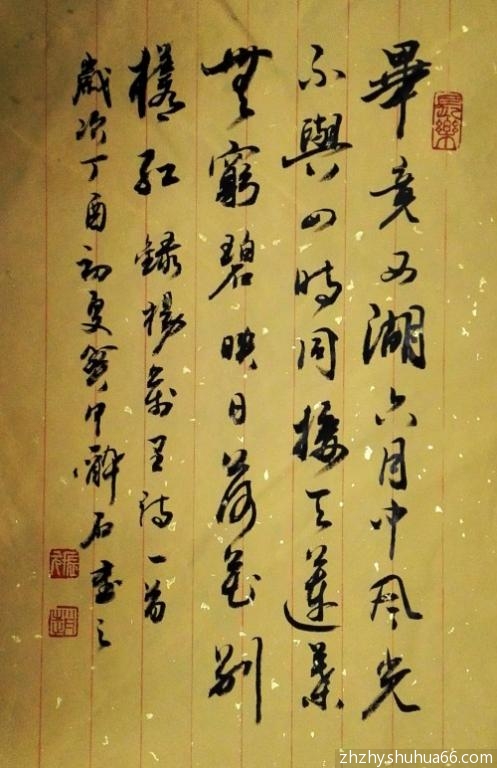 長樂
畢竟西湖六月中風光
不與四時同接天蓮葉
無窮碧映日荷花別
樣紅錄楊萬里詩一首
歲次丁酉初夏醉石書之
zhzhyshuhua66.com